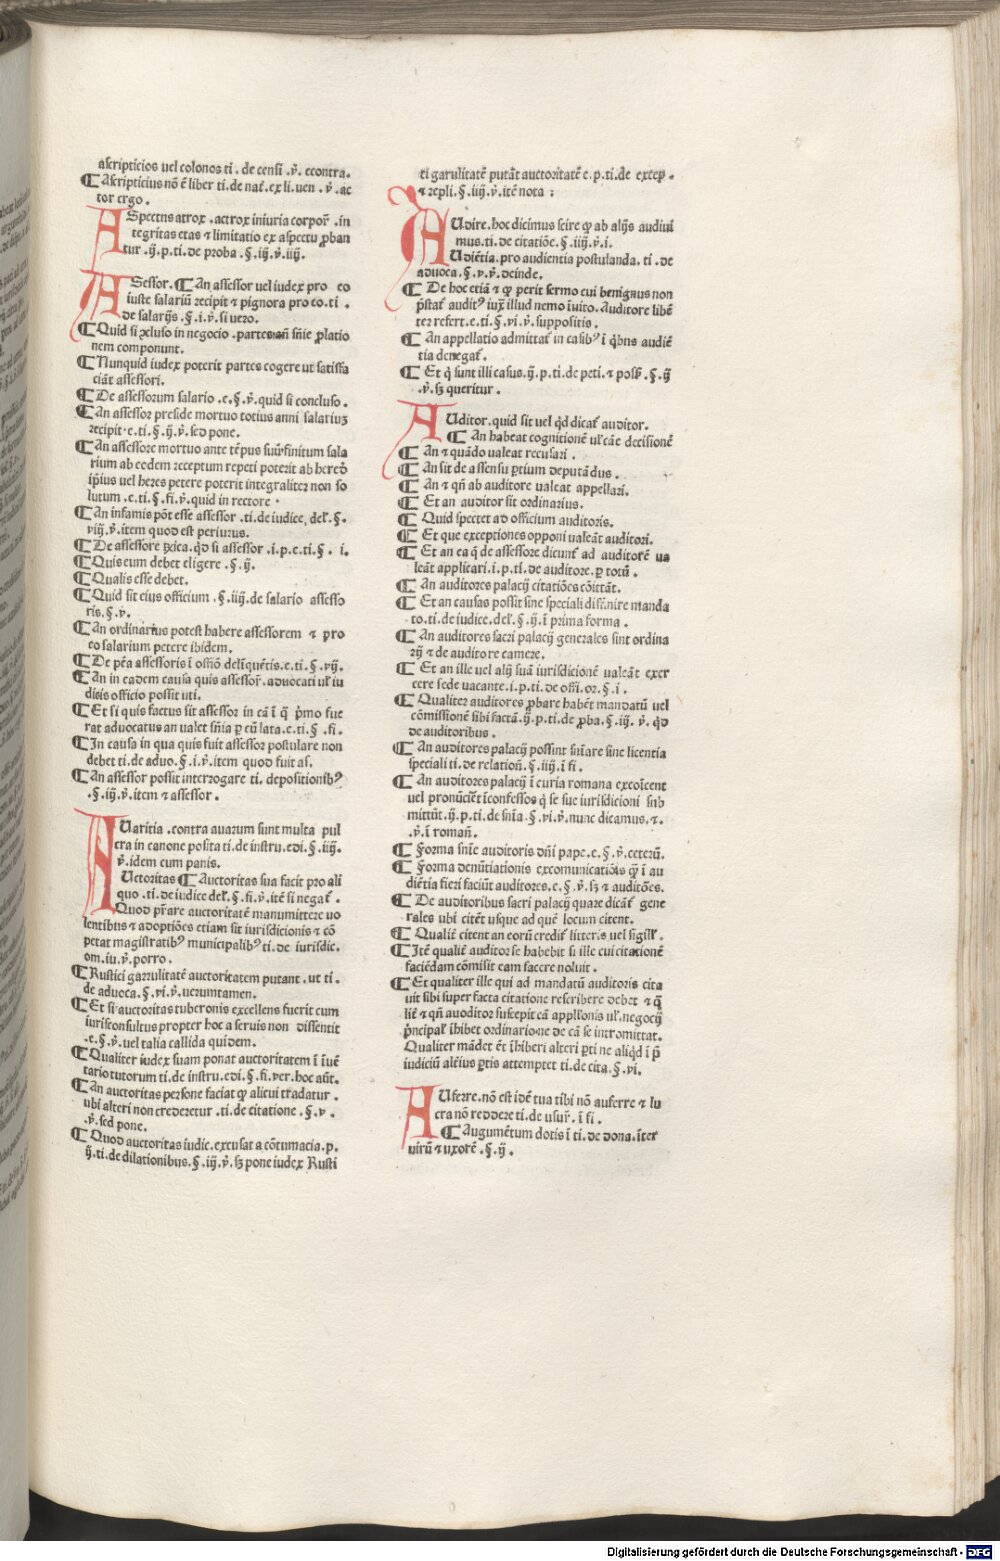 ascripticios uel colonos ti . de censi . v̄ . econtra.
¶ Ascripticius nō ē liber ti. de nat̄. ex li. uen . v̄ . ac
tor ergo .
ASpectus atrox . actrox iniuria corporꝭ . in
tegritas etas ⁊ limitatio ex aspectu ꝓban
tur . ij . p . ti . de proba . §. iij . v̄ . iiij.
ASessor. ¶ An assessor uel iudex pro eo
iuste salariū recipit ⁊ pignora pro eo. ti .
de salarijs . §. i . v̄ . si uero.
¶ Quid si ꝯcluso in negocio . partes añ sñie ꝓlatio
nem componunt.
¶ Nunquid iudex poterit partes cogere ut satisfa
ciāt assessori.
¶ De assessorum salario . e. §. v̄. quid si concluso .
¶ An assessor preside mortuo totius anni salariuꝫ
recipit . e. ti . §. ij . v̄ . sed pone .
¶ An assessore mortuo ante tēpus suū finitum sala
rium ab eodem receptum repeti poterit ab heredꝭ
ip̄ius uel heres petere poterit integraliter non so
lutum . e. ti . §. fi . v̄. quid in rectore .
¶ An infamis pōt esse assessor . ti. de iudice. del̄. §.
viij . v̄. item quod est periurus.
¶ De assessore ꝫica. qđ si assessor . i . p . e . ti . § . i.
¶ Quis eum debet eligere . §. ij.
¶ Qualis esse debet.
¶ Quid sit eius officium . §. iiij. de salario assesso
ris. §. v.
¶ An ordinarius potest habere assessorem ⁊ pro
eo salarium petere ibidem.
¶ De pēa assessoris ī offiō delīquētis. e. ti. §. vij.
¶ An in eadem causa quis assessorꝭ. aduocati ul̄ iu
dicis officio possit uti.
¶ Et si quis factus sit assessor in cā ī q̄ pͥmo fue
rat aduocatus an ualet sñia ꝑ eū lata. e. ti. §. fi.
¶ In causa in qua quis fuit assessor postulare non
debet ti. de aduo. §. i . v̄ . item quod fuit as.
¶ An assessor possit interrogare ti. depositionibꝰ
. §. iij. v̄. item ⁊ assessor .
AUaritia . contra auarum sunt multa pul
cra in canone posita ti. de instru. edi. §. iiij.
v̄. idem cum panis.
AUctoritas ¶ Auctoritas sua facit pro ali
quo . ti. de iudice del̄. §. fi. v̄. itē si negat̄ .
Quod p̄rare auctoritatē manumittere uo
lentibus ⁊ adoptiōes etiam sit iurisdicionis ⁊ cō
petat magistratibꝰ municipalibꝰ ti. de iurisdic.
om. iu. v̄. porro .
¶ Rustici garrulitatē auctoritatem putant . ut ti .
de aduoca. §. vi. v̄. uerumtamen.
¶ Et si auctoritas tuberonis excellens fuerit cum
iurisconsultus propter hoc a seruis non dissentit
. e. §. v̄. uel talia callida quidem.
¶ Qualiter iudex suam ponat auctoritatem ī īuē
tario tutorum ti. de instru. edi. §. fi. ver. hoc aūt.
¶ An auctoritas persone faciat qꝫ alicui tradatur .
ubi alteri non crederetur . ti. de citatione . §. v .
. v̄. sed pone.
¶ Quod auctoritas iudic. excusat a cōtumacia. p.
ij. ti. de dilationibus. §. iij. v̄. sꝫ pone iudex Rusti
ci garulitatē putāt auctoritatē e . p. ti. de excep .
⁊ repli. §. iiij. v̄. itē nota :
AUdire. hoc dicimus scire qꝫ ab alijs audiui
mus. ti. de citatiōe. §. iiij. v̄. i.
AUdiētia. pro audientia postulanda. ti . de
aduoca. §. v. v̄. deinde.
¶ De hoc etiā ⁊ qꝫ perit sermo cui benignus non
p̄stat̄ auditꝰ iux̄ illud nemo īuito. Auditore libē
ter refert. e. ti. §. vi . v̄. suppositis .
¶ An appellatio admittat̄ in casibꝰ ī qͥbus audiē
tia denegat̄.
¶ Et qͥ sunt illi casus. ij. p. ti. de peti. ⁊ poss̄. §. ij
. v̄. sꝫ queritur .
AUditor. quid sit uel qͥd dicat̄ auditor.
¶ An habeat cognitionē ul̄ cāe decisionē
¶ An ⁊ quādo ualeat recusari .
¶ An sit de assensu ꝑtium deputādus .
¶ An ⁊ qñ ab auditore ualeat appellari.
¶ Et an auditor sit ordinarius.
¶ Quid spectet ad officium auditoris.
¶ Et que exceptiones opponi ualeāt auditori.
¶ Et an ea q̄ de assessore dicunt̄ ad auditorē ua
leāt applicari. i. p. ti. de auditore. ꝑ totū .
¶ An auditores palacij citatiōes cōittāt.
¶ Et an causas possit sine speciali diffinire manda
to. ti. de iudice. del̄. §. ij. ī prima forma .
¶ An auditores sacri palacij generales sint ordina
rij ⁊ de auditore camere.
¶ Et an ille uel alij suā iurisdicionē ualeāt exer
cere sede uacante. i. p. ti. de offi. or. §. i .
¶ Qualiter auditores ꝓbare habēt mandatū uel
cōmissionē sibi factā. ij. p. ti. de ꝓba. §. iij. v̄. qđ
de auditoribus .
¶ An auditores palacij possint sñiare sine licentia
speciali ti. de relatioñ. §. iiij. ī fi .
¶ An auditores palacij ī curia romana excōicent
uel pronūciēt īconfessos qͥ se sue iurisdicioni sub
mittūt. ij. p. ti. de sñia. §. vi. v̄. nunc dicamus. ⁊.
. v̄. ī romañ.
¶ Forma snīe auditoris dñi pape. e. §. v̄. ceterū.
¶ Forma denūtiationis excomunicatiōis qͣm ī au
diētia fieri faciūt auditores. e. §. v̄. sꝫ ⁊ auditōes.
¶ De auditoribus sacri palacij quare dicāt̄ gene
rales ubi citēt usque ad quē locum citent.
¶ Qualiē citent an eorū credit̄ litteris uel sigill̄.
¶ Itē qualiē auditor se habebit si ille cui citationē
faciēdam cōmisit eam facere noluit .
¶ Et qualiter ille qui ad mandatū auditoris cita
uit sibi super facta citatione rescribere debet ⁊ qͣ
liē ⁊ qñ auoditor suscepit cā appll̄onis ul̄. negocij
pͥncipal̄ īhibet ordinarione de cā se intromittat.
Qualiter mādet ēt īhiberi alteri ꝑti ne aliqͥd ī p̄
iudiciū alt̄ius ꝑtis attemptet ti. de cita. §. vi.
AUferre. nō est idē tua tibi nō auferre ⁊ lu
cra nō reddere ti. de usurꝭ. ī fi .
¶ Augumētum dotis ī ti. de dona. īter
uirū ⁊ uxorē . §. ij .
Digitalisierung gefördert durch die Deutsche Forschungsgemeinschaft - DFG